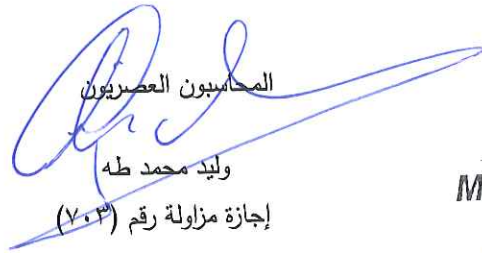 المحاسبون العصريون
وليد محمد طه
إجازة مزاولة رقم (٧٠٣)
M